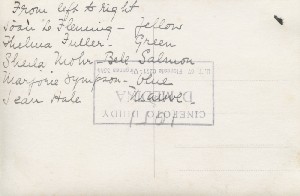 From left to right
Joan L Fleming - Yellow
Thelma Fuller - Green
Sheila Mohr - Salmon
Marjorie Sympson - Blue
Jean Hale Mauve
CINEFOTO UHIDY